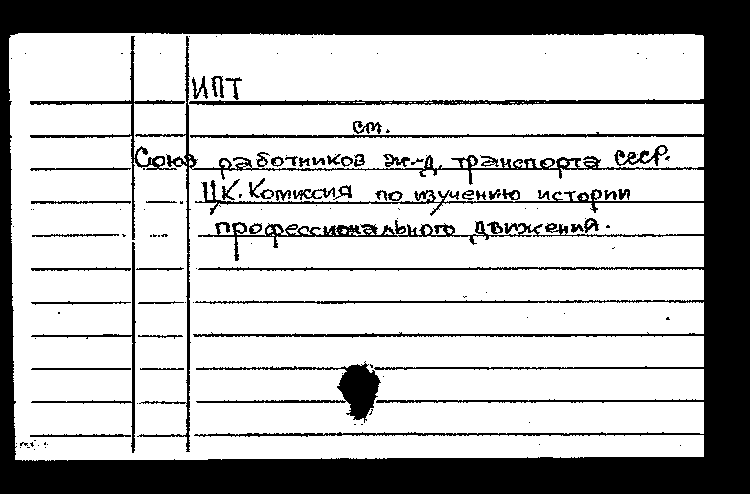 ИПТ
см.
Союз работников ж.-д. транспорта СССР.
ЦК. Комиссия по изучению истории
профессионального движения.